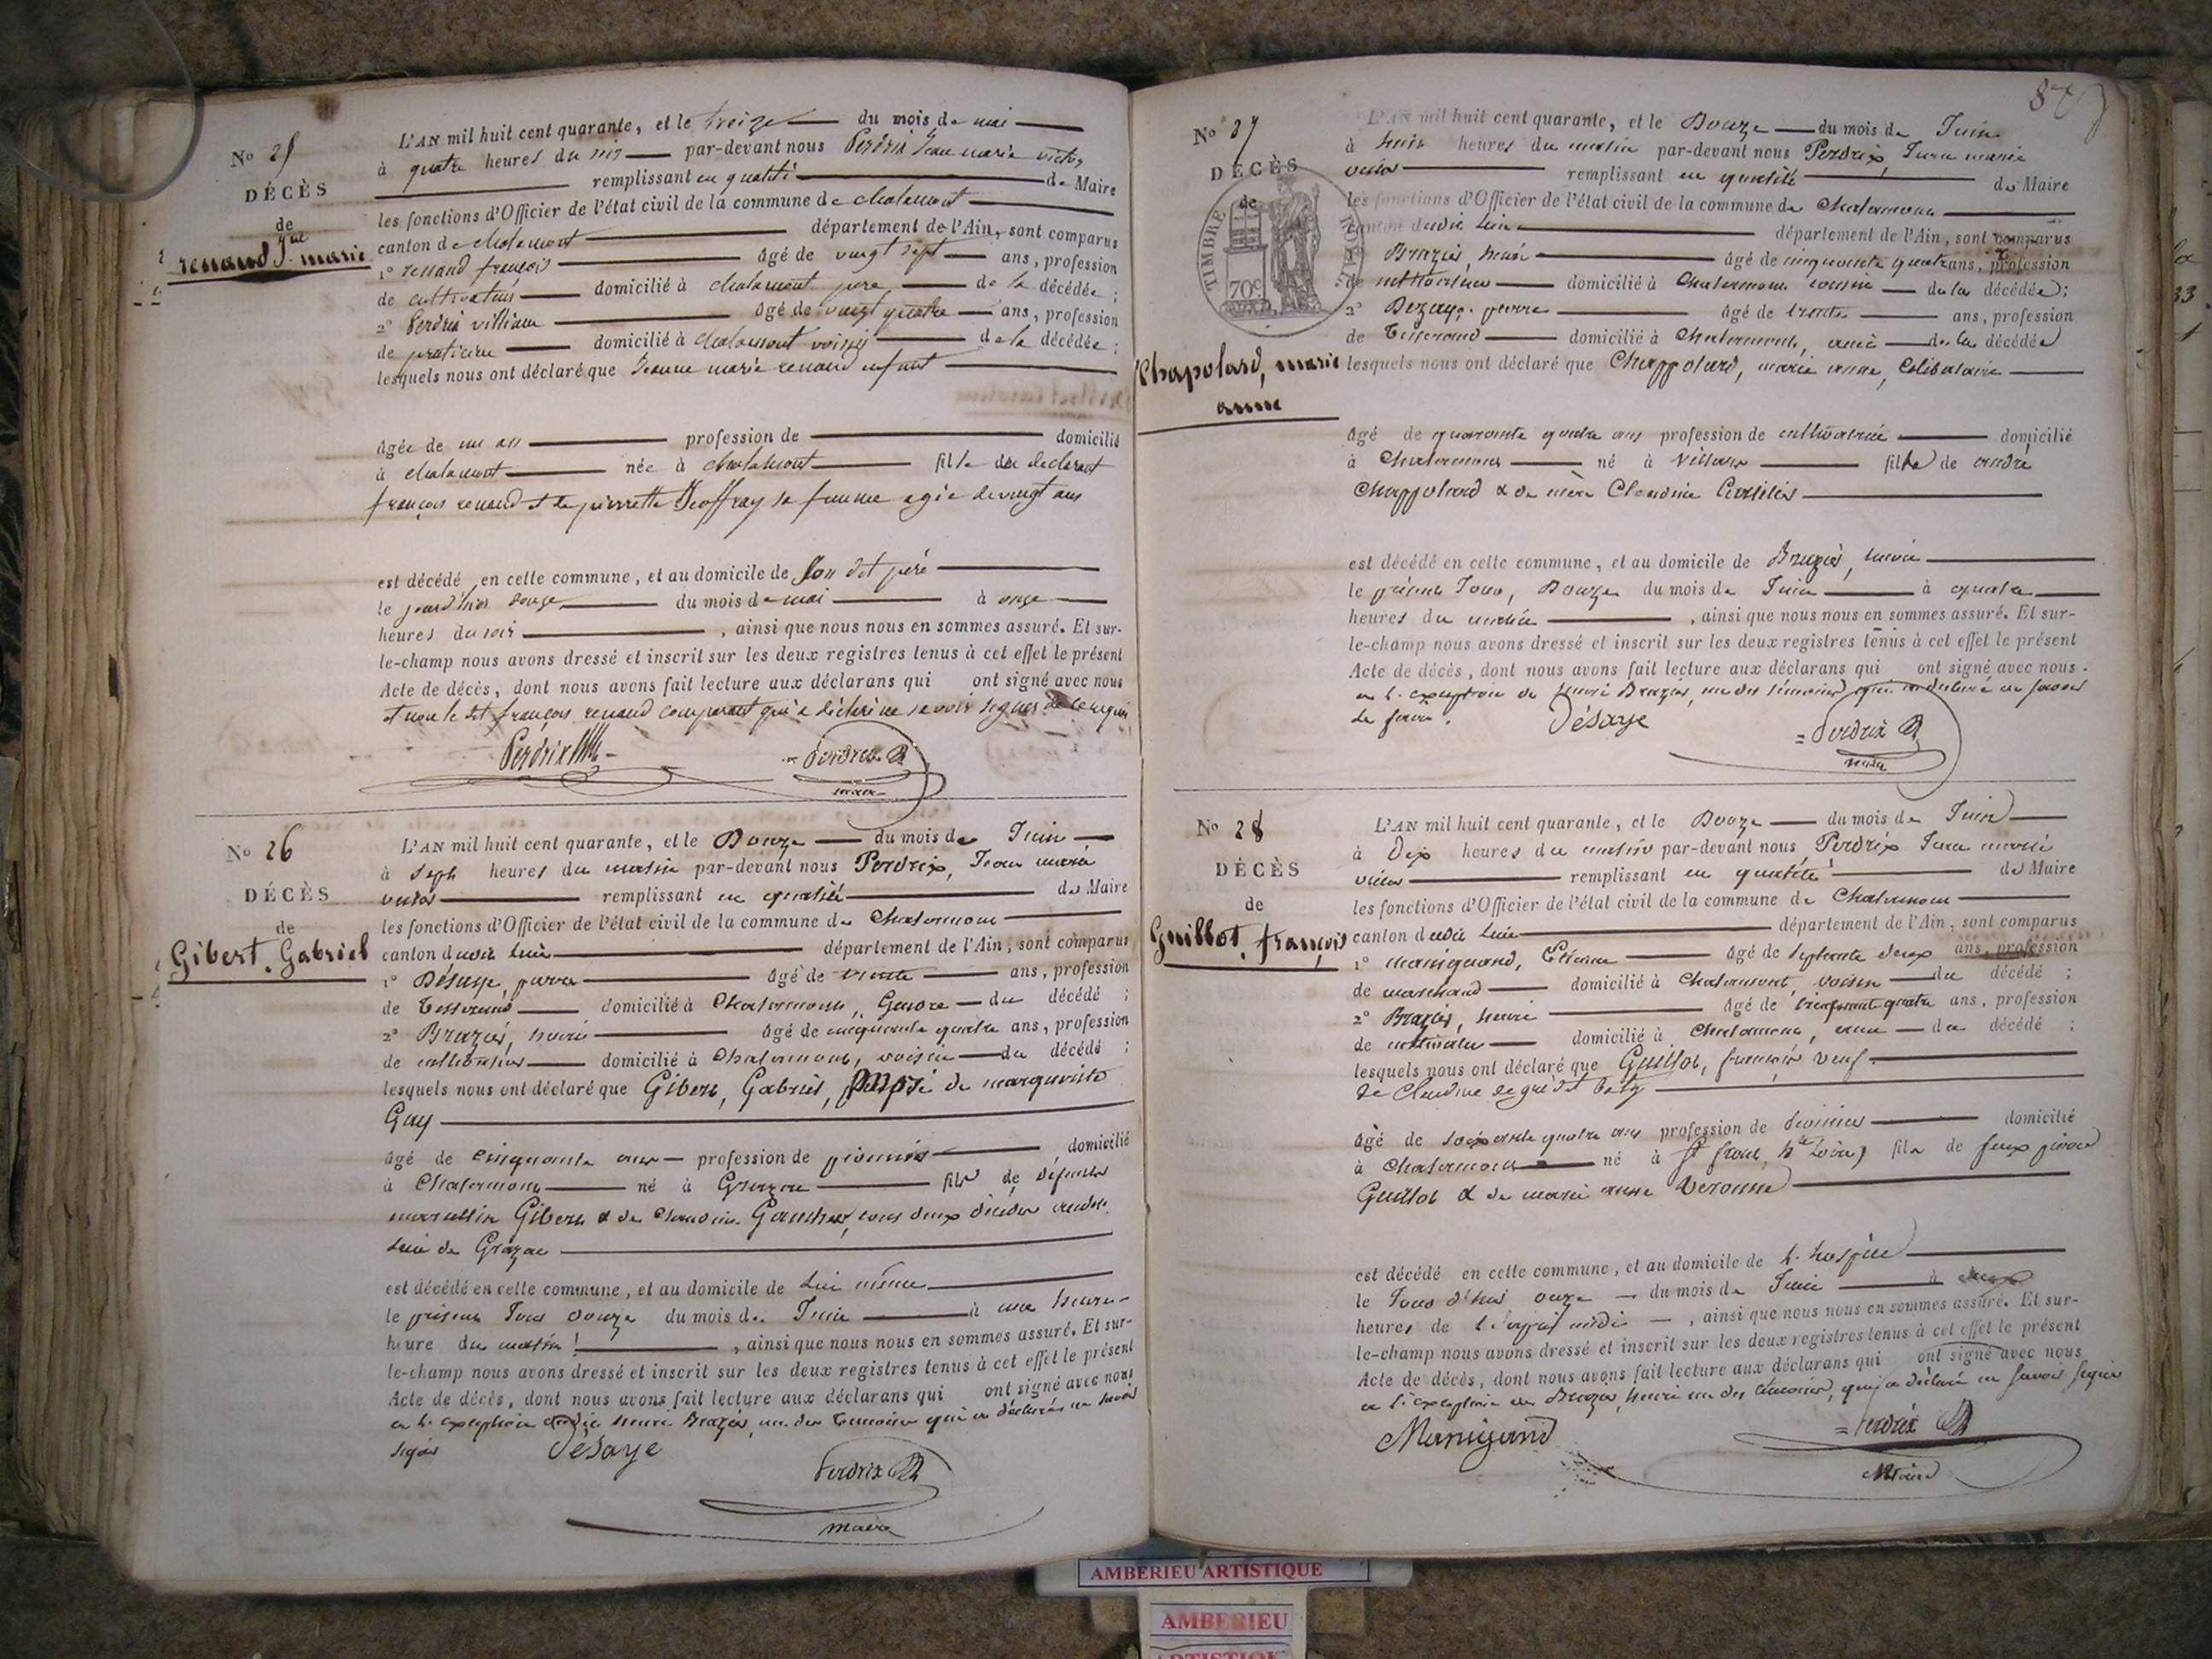 No 25
DÉCÈS
de
renaud Jne marie
L'AN mil huit cent quarante, et le treize du mois de mai
à quatre heures du soir par-devant nous Perdrix Jean marie victor
remplissant en qualité de Maire
les fonctions d'Officier de l'état civil de la commune de chalamont
canton de chalamont département de l'Ain, sont comparus
1° renaud françois âgé de vingt sept ans, profession
de cultivateur domicilié à chalamont père de la décédée ;
2° Perdrix villiam âgé de vingt quatre ans, profession
de praticien domicilié à chalamont voisin de la décédée ;
lesquels nous ont déclaré que Jeanne marie renaud enfant
âgée de un an profession de domicilié
à chalamont née à chalamont fille du declarant
françois renaud et de pierrette Geoffray sa femme agée de vingt ans
est décédé en cette commune, et au domicile de son dit père
le jourd'hier douze du mois de mai à onze
heures du soir , ainsi que nous nous en sommes assuré. Et sur-
le-champ nous avons dressé et inscrit sur les deux registres tenus à cet effet le présent
Acte de décès, dont nous avons fait lecture aux déclarans qui ont signé avec nous
et non le dit françois renaud comparant qui a déclaré ne savoir signer de ce requis
Perdrix Perdrix
maire
No 26
DÉCÈS
de
Gibert, Gabriel
L'AN mil huit cent quarante, et le Douze du mois de Juin
à Sept heures du matin par-devant nous Perdrix, Jean marie
victor remplissant en qualité de Maire
les fonctions d'Officier de l'état civil de la commune de Chalamont
canton dudit lieu département de l'Ain, sont comparus
1° Désaye, pierre âgé de trente ans, profession
de Tisserand domicilié à Chalamont, Gendre du décédé ;
2° Brazier, henri âgé de cinquante quatre ans, profession
de cultivateur domicilié à Chalamont, voisin du décédé ;
lesquels nous ont déclaré que Gibert, Gabriel, époux de marguerite
Guy
âgé de Cinquante ans profession de pionnier domicilié
à Chalamont né à Grazac fils de défunts
marcellin Gibert & de Claudine tous deux décédés audit
lieu de Grazac
est décédé en cette commune, et au domicile de lui même
le présent Jour douze du mois de Juin à une heure
heure du matin , ainsi que nous nous en sommes assuré. Et sur-
le-champ nous avons dressé et inscrit sur les deux registres tenus à cet effet le présent
Acte de décès, dont nous avons fait lecture aux déclarans qui ont signé avec nous
a l'exception dudit henri Brazier, un des temoins qui a déclaré ne savoir
signer Désaye Perdrix
maire
87
No 27
DÉCÈS
de
TIMBRE ROYAL
70c
Chapolard, marie
anne
L'AN mil huit cent quarante, et le Douze du mois de Juin
à huit heures du matin par-devant nous Perdrix, Jean marie
victor remplissant en qualité de Maire
les fonctions d'Officier de l'état civil de la commune de Chalamont
canton dudit lieu département de l'Ain, sont comparus
Brazier, henri âgé de cinquante quatre ans, profession
de cultivateur domicilié à Chalamont cousin de la décédée ;
2° Dezaye, pierre âgé de trente ans, profession
de Tisserand domicilié à Chalamont, ami de la décédée
lesquels nous ont déclaré que Chappolard, marie anne, Célibataire
âgé de quarante quatre ans profession de cultivatrice domicilié
à Chalamont né à Villars fille de andré
Chappolard & de mère Claudine
est décédé en cette commune, et au domicile de Brazier, henri
le présent Jour, Douze du mois de Juin à quatre
heures du matin , ainsi que nous nous en sommes assuré. Et sur-
le-champ nous avons dressé et inscrit sur les deux registres tenus à cet effet le présent
Acte de décès, dont nous avons fait lecture aux déclarans qui ont signé avec nous.
a l'exception de henri Brazier, un des temoins, qui a déclaré ne savoir
le faire. Désaye Perdrix
maire
No 28
DÉCÈS
de
Guillot, françois
L'AN mil huit cent quarante, et le Douze du mois de Juin
à Dix heures du matin par-devant nous Perdrix Jean marie
victor remplissant en qualité de Maire
les fonctions d'Officier de l'état civil de la commune de Chalamont
canton dudit lieu département de l'Ain, sont comparus
1° manigand, Étienne âgé de septante deux ans, profession
de marchand domicilié à Chalamont, voisin du décédé ;
2° Brazier, henri âgé de cinquante quatre ans, profession
de cultivateur domicilié à Chalamont, ami du décédé ;
lesquels nous ont déclaré que Guillot, françois veuf
de Claudine
âgé de soixante quatre ans profession de domicilié
à Chalamont né à St front, hte Loire) fils de feux pierre
Guillot & de marie anne Veronne
est décédé en cette commune, et au domicile de l'hospice
le Jour d'hier onze du mois de Juin à deux
heures de l'après midi , ainsi que nous nous en sommes assuré. Et sur-
le-champ nous avons dressé et inscrit sur les deux registres tenus à cet effet le présent
Acte de décès, dont nous avons fait lecture aux déclarans qui ont signé avec nous
a l'exception de Brazier, henri un des temoins, qui a déclaré ne savoir signer
Manigand Perdrix
Maire
AMBERIEU ARTISTIQUE
AMBERIEU
ARTISTIQUE